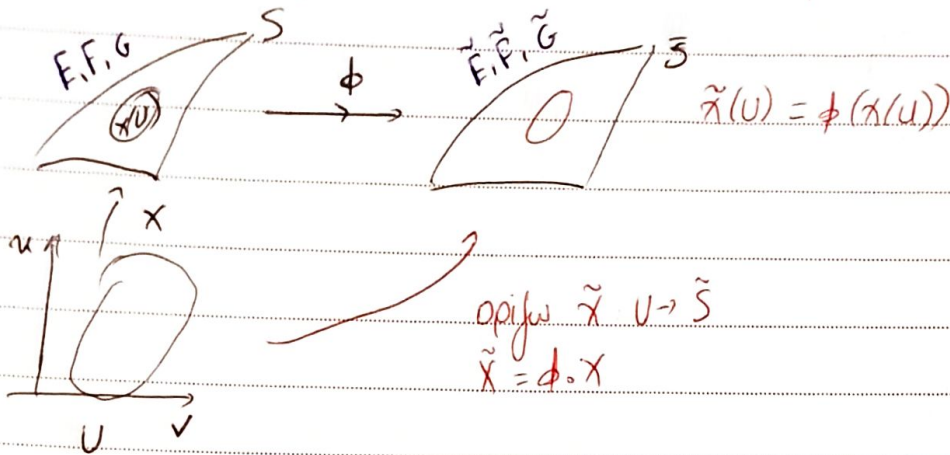 S
E, F, G
x(U)
ϕ
Ẽ, F̃, G̃
S̃
x̃(U) = ϕ(x(U))
x
u
v
U
ορίζω x̃ U → S̃
x̃ = ϕ∘x